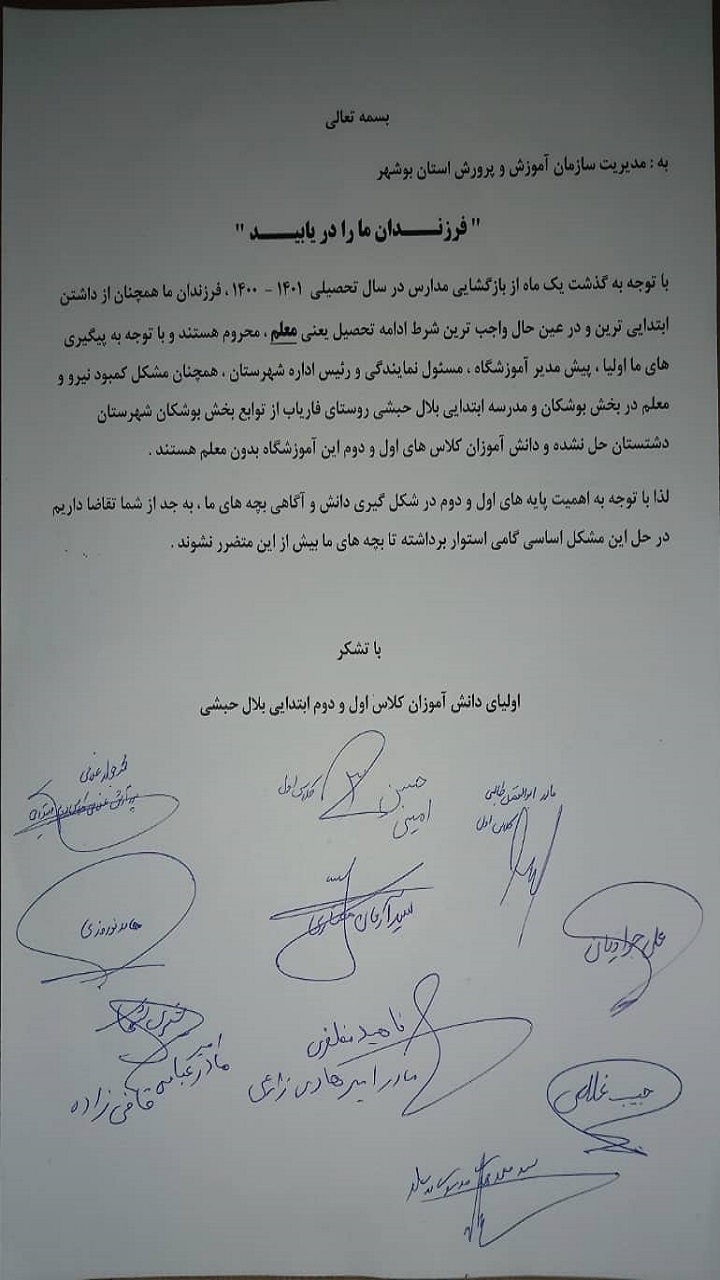 بسمه تعالی
به : مدیریت سازمان آموزش و پرورش استان بوشهر
" فرزنـــــدان ما را دریابیـــــد "
با توجه به گذشت یک ماه از بازگشایی مدارس در سال تحصیلی ۱۴۰۱ - ۱۴۰۰ ، فرزندان ما همچنان از داشتن
ابتدایی ترین و در عین حال واجب ترین شرط ادامه تحصیل یعنی معلم ، محروم هستند و با توجه به پیگیری
های ما اولیا ، پیش مدیر آموزشگاه ، مسئول نمایندگی و رئیس اداره شهرستان ، همچنان مشکل کمبود نیرو و
معلم در بخش بوشکان و مدرسه ابتدایی بلال حبشی روستای فاریاب از توابع بخش بوشکان شهرستان
دشتستان حل نشده و دانش آموزان کلاس های اول و دوم این آموزشگاه بدون معلم هستند .
لذا با توجه به اهمیت پایه های اول و دوم در شکل گیری دانش و آگاهی بچه های ما ، به جد از شما تقاضا داریم
در حل این مشکل اساسی گامی استوار برداشته تا بچه های ما بیش از این متضرر نشوند .
با تشکر
اولیای دانش آموزان کلاس اول و دوم ابتدایی بلال حبشی
حسین امینی
کلاس اول
مادر ابوالفضل
کلاس اول
سید آرمان
حامد نوروزی
علی جوادیان
ناهید مظفری
مادر امیرهادی زائری
مادر امیرعباس
قاضی زاده
حبیب غلامی